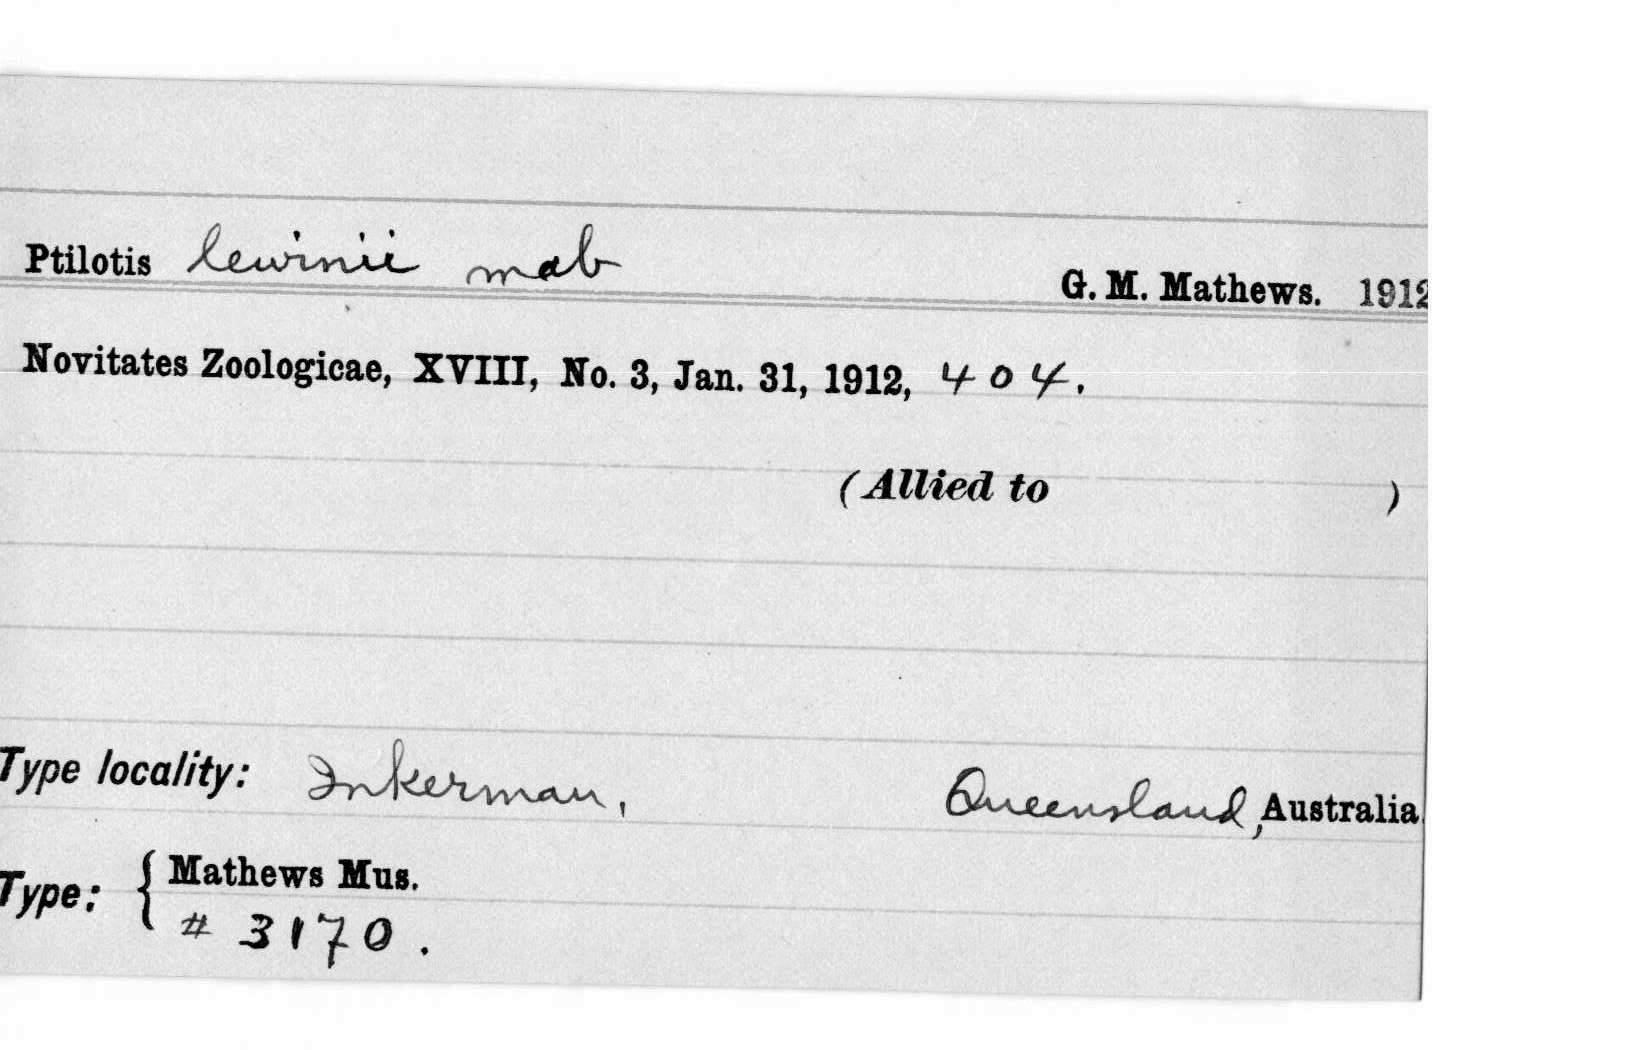 Ptilotis lewinii mab G. M. Mathews. 1912
Novitates Zoologicae, XVIII, No. 3, Jan. 31, 1912, 404.
(Allied to )
Type locality: Inkerman, Queensland, Australia.
Type: { Mathews Mus.
# 3170.